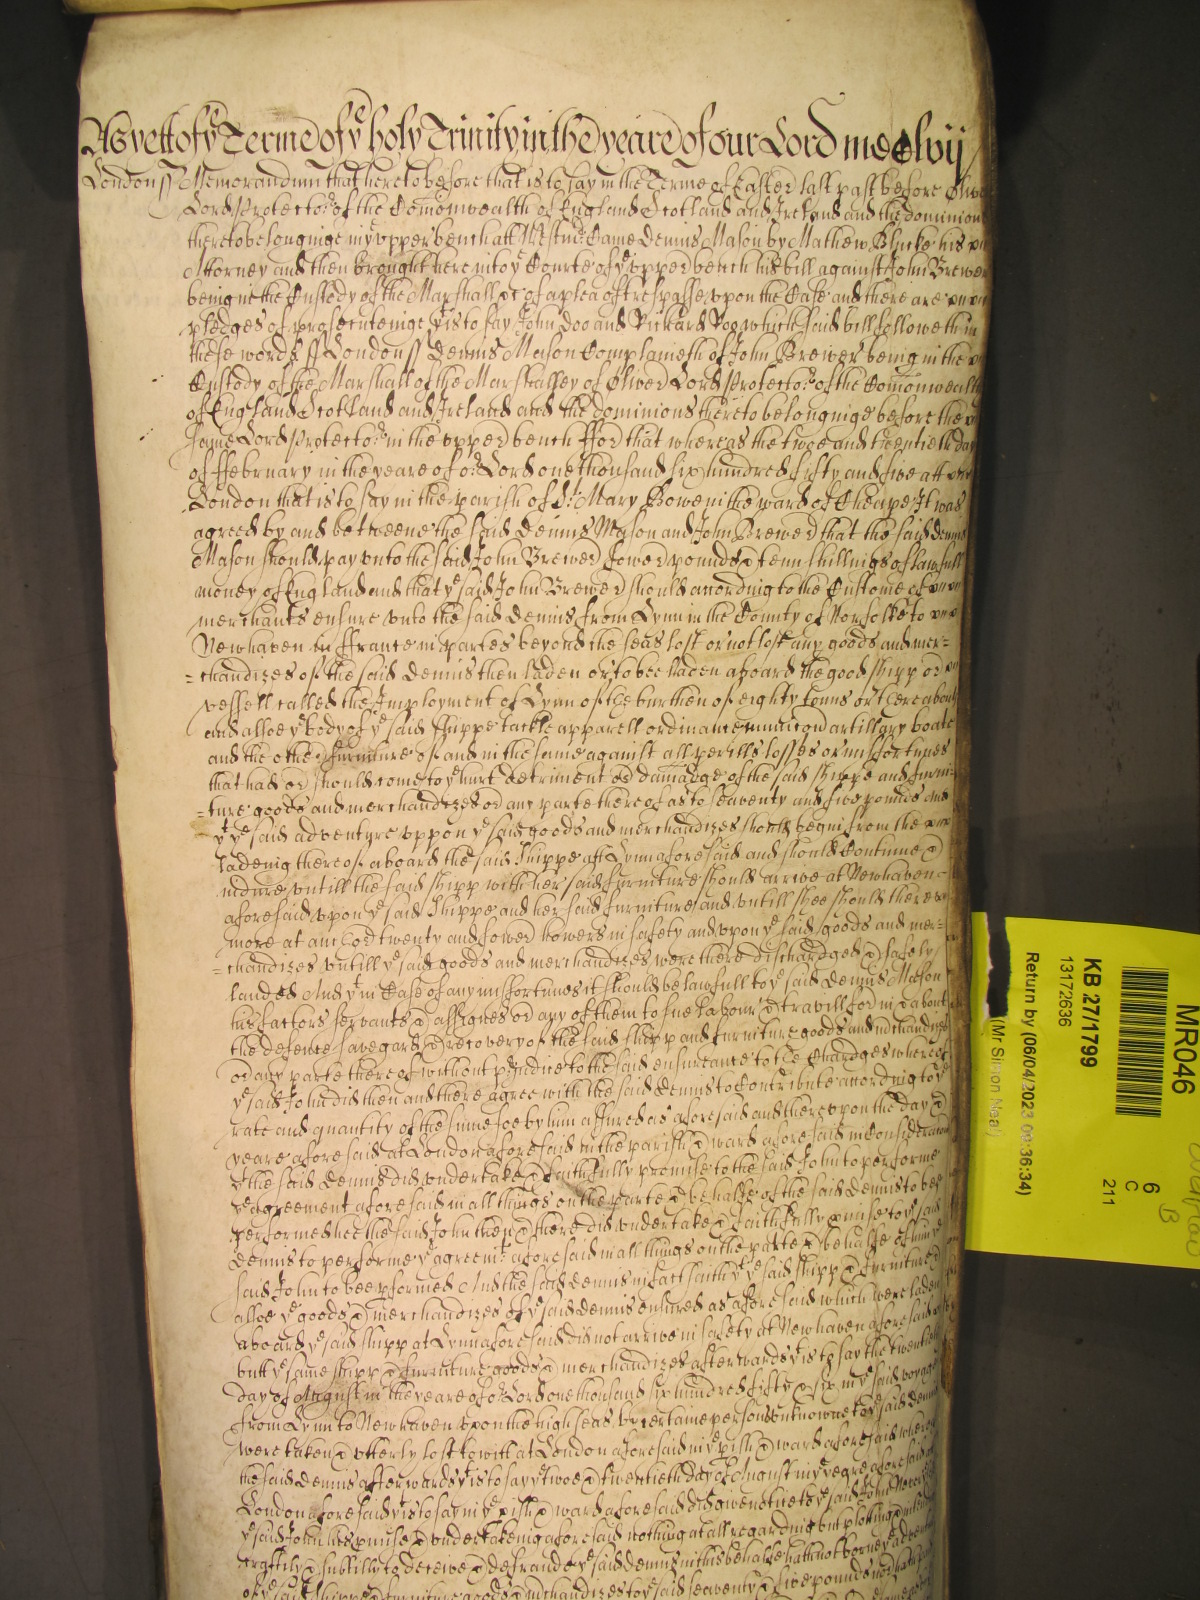 As yett of ye Terme of ye holy Trinity in the yeare of our Lord mdclvij
London ss Memorandum that heretofore that is to say in the Terme of Easter last past before Oliver
Lord Protector of the Comonwealth of England Scotland and Ireland and the dominions
thereto belonginge in ye upper bench att Westmr Came Dennis Mason by Mathew Blucke his
Attorney and then brought here into ye Courte of ye upper bench his bill against John Brewer
being in the Custody of the Marshall &c of a plea of trespasse upon the Case and there are
pledges of prosecuteinge yt is to say John Doo and Richard Roo which said bill followeth in
these words ss London ss Dennis Mason Complaineth of John Brewer being in the
Custody of the Marshall of the Marshallsey of Oliver Lord Protector of the Comonwealth
of England Scotland and Ireland and the dominions thereto belonginge before the
same Lord Protector in the upper bench ffor that whereas the twoe and twentieth day
of ffebruary in the yeare of or Lord one thousand six hundred fifty and five att
London that is to say in the parish of St Mary Bowe in the ward of Cheape It was
agreed by and betweene the said Dennis Mason and John Brewer that the said Dennis
Mason should pay unto the said John Brewer fower pounds & tenn shillings of lawfull
money of England and that ye said John Brewer should according to the Custome of
merchants ensure unto the said Dennis from Lynn in the County of Norfolke to
Newhaven in ffrance in partes beyond the seas lost or not lost any goods and mer=
=chandizes of the said Dennis then laden or to bee laden aboard the good shipp or
vessell called the Imployment of Lynn of the burthen of eighty tonns or thereabouts
and alsoe ye body of ye said Shippe tackle apparell ordinance municon artillary boate
and the other furniture of and in the same against all perills losses or misfortunes
that had or should come to ye hurt detriment or damadge of the said Shippe and furni=
=ture goods and merchandizes or any parte thereof as to seaventy and five pounds and
yt ye said adventure uppon ye said goods and merchandizes should begin from the
ladeing thereof aboard the said Shippe att Lynn aforesaid and should Continue &
indure untill the said Shipp with her said furniture should arrive at Newhaven
aforesaid upon ye said Shippe and her said furniture and untill shee should there
more at anchor twenty and fower howers in safety and upon ye said goods and mer=
=chandizes untill ye said goods and merchandizes were there dischardged & safely
landed And yt in Case of any misfortunes it should be lawfull to ye said Dennis Mason
his factors servants & assignes or any of them to sue labour & travill for in & about
the defence savegard & recovery of the said Shipp and furniture goods and mchandizes
or any parte thereof without prejudice to the said ensureance to the Chardges whereof
ye said John did then and there agree with the said Dennis to Contribute according to ye
rate and quantity of the summe soe by him assured as aforesaid and thereupon the day &
yeare aforesaid at London aforesaid in the parish & ward aforesaid in Consideracon
yt the said Dennis did undertake & faithfully promise to the said John to performe
ye agreement aforesaid in all things on the parte & behalfe of the said Dennis to bee
performed hee the said John then & there did undertake & faithfully pmise to ye said
Dennis to performe ye agreemt aforesaid in all things on the parte & behalfe of him ye
said John to bee pformed And the said Dennis in fact saith yt ye said Shipp & furniture &
alsoe ye goods & merchandizes of ye said Dennis ensured as aforesaid which were laden
aboard ye said Shipp at Lynn aforesaid did not arrive in safety at Newhaven aforesaid
butt ye same Shipp & furniture goods & merchandizes afterwards yt is to say the twentieth
day of August in the yeare of or Lord one thousand six hundred fifty & six in ye said voyage
from Lynn to Newhaven upon the high seas by certaine persons unknowne to ye said Dennis
were taken & utterly lost to witt at London aforesaid in ye pish & ward aforesaid whereof
the said Dennis afterwards yt is to say ye twoe & twentieth day of August in ye yeare aforesaid at
London aforesaid yt is to say in ye pish & ward aforesaid did give notice to ye said John Neverthelesse
ye said John his pmise & undertakeing aforesaid nothing at all regarding but plotting &
craftily & subtilly to deceive & defraude ye said Dennis in this behalfe hath not borne ye adventure
of ye said Shippe & furniture goods & mchandizes to ye said seaventy & five pounds
MR046
KB 27/1799
13172636
Return by (06/04/2023 09:36:34)
(Mr Simon Neal)
6
C
211